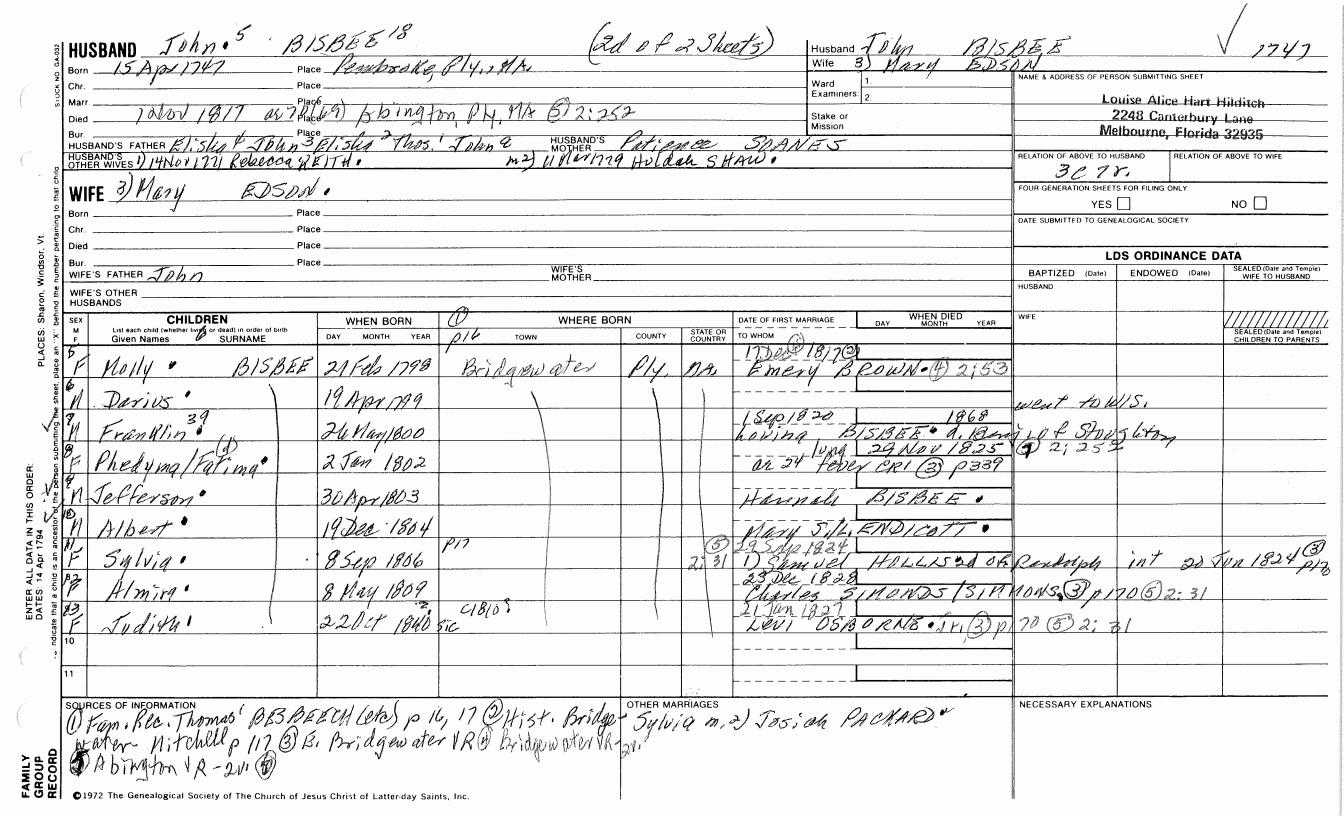 HUSBAND John 5 BISBEE 18 (2d of 2 Sheets)
Husband John BISBEE 1747
Wife 3) Mary EDSON
Born 15 Apr 1747 Place Pembroke, Ply., MA.
Chr. Place
Marr Place
Died 7 Nov 1817 ae 70 (69) Abington, Ply, MA (5) 2:252
Bur Place
Ward 1
Examiners 2
Stake or
Mission
NAME & ADDRESS OF PERSON SUBMITTING SHEET
Louise Alice Hart Hilditch
2248 Canterbury Lane
Melbourne, Florida 32935
HUSBAND'S FATHER Elisha 4 John 3 Elisha 2 Thos. 1 John a HUSBAND'S MOTHER Patience SOANES
HUSBAND'S OTHER WIVES 1) 14 Nov 1771 Rebecca KEITH. m 2) 11 Mar 1779 Huldah SHAW.
RELATION OF ABOVE TO HUSBAND RELATION OF ABOVE TO WIFE
3c 7r.
WIFE 3) Mary EDSON.
FOUR GENERATION SHEETS FOR FILING ONLY
YES NO
Born Place
Chr. Place
Died Place
Bur. Place
DATE SUBMITTED TO GENEALOGICAL SOCIETY
WIFE'S FATHER John WIFE'S MOTHER
WIFE'S OTHER
HUSBANDS
LDS ORDINANCE DATA
BAPTIZED (Date) ENDOWED (Date) SEALED (Date and Temple) WIFE TO HUSBAND
HUSBAND
WIFE
SEALED (Date and Temple) CHILDREN TO PARENTS
SEX M F CHILDREN WHEN BORN (1) WHERE BORN DATE OF FIRST MARRIAGE WHEN DIED
List each child (whether living or dead) in order of birth
Given Names SURNAME DAY MONTH YEAR p16 TOWN COUNTY STATE OR COUNTRY TO WHOM DAY MONTH YEAR
17 Dec 1817 (2)
5 F Molly BISBEE 27 Feb 1798 Bridgewater Ply. MA. Emery BROWN (4) 2:53
6 M Darius 19 Apr 1799 went to WIS.
1 Sep 1820 1868
7 M Franklin 39 26 May 1800 Loving BISBEE d. Benj of Stoughton
lung 29 Nov 1825 (5) 2:252
8 F Phedyma/Fatima (d) 2 Jan 1802 ae 24 fever CR1 (3) p339
9 M Jefferson 30 Apr 1803 Hannah BISBEE
10 M Albert 19 Dec 1804 Mary S./L. ENDICOTT
p17 (5) 29 Sep 1824
11 F Sylvia 8 Sep 1806 2:31 1) Samuel HOLLIS 2d of Randolph int 20 Jun 1824 (3) p170
23 Dec 1828
12 F Almira 8 May 1809 Charles SIMONDS/SIMMONS (3) p170 (5) 2:31
21 Jan 1827
13 F Judith 22 Oct 1840 sic C1810? Levi OSBORNE Jr. (3) p170 (5) 2:31
10
11
SOURCES OF INFORMATION
(1) Fam. Rec. Thomas 1 BESBEECH (etc) p 16, 17 (2) Hist. Bridge-
water - Mitchell p 117 (3) E. Bridgewater VR (4) Bridgewater VR - 2v.
(5) Abington VR - 2v.
OTHER MARRIAGES
Sylvia m. 2) Josiah PACKARD
NECESSARY EXPLANATIONS
©1972 The Genealogical Society of The Church of Jesus Christ of Latter-day Saints, Inc.
FAMILY
GROUP
RECORD
ENTER ALL DATA IN THIS ORDER:
DATES 14 Apr 1794
PLACES: Sharon, Windsor, Vt
STOCK NO. GA-032